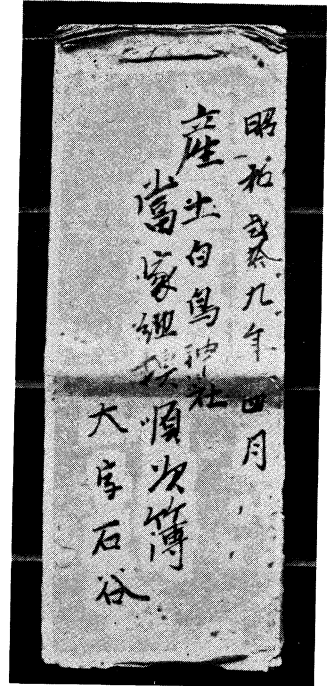 昭和弐拾九年四月
産土白鳥神社
當家組換順次簿
大字石谷